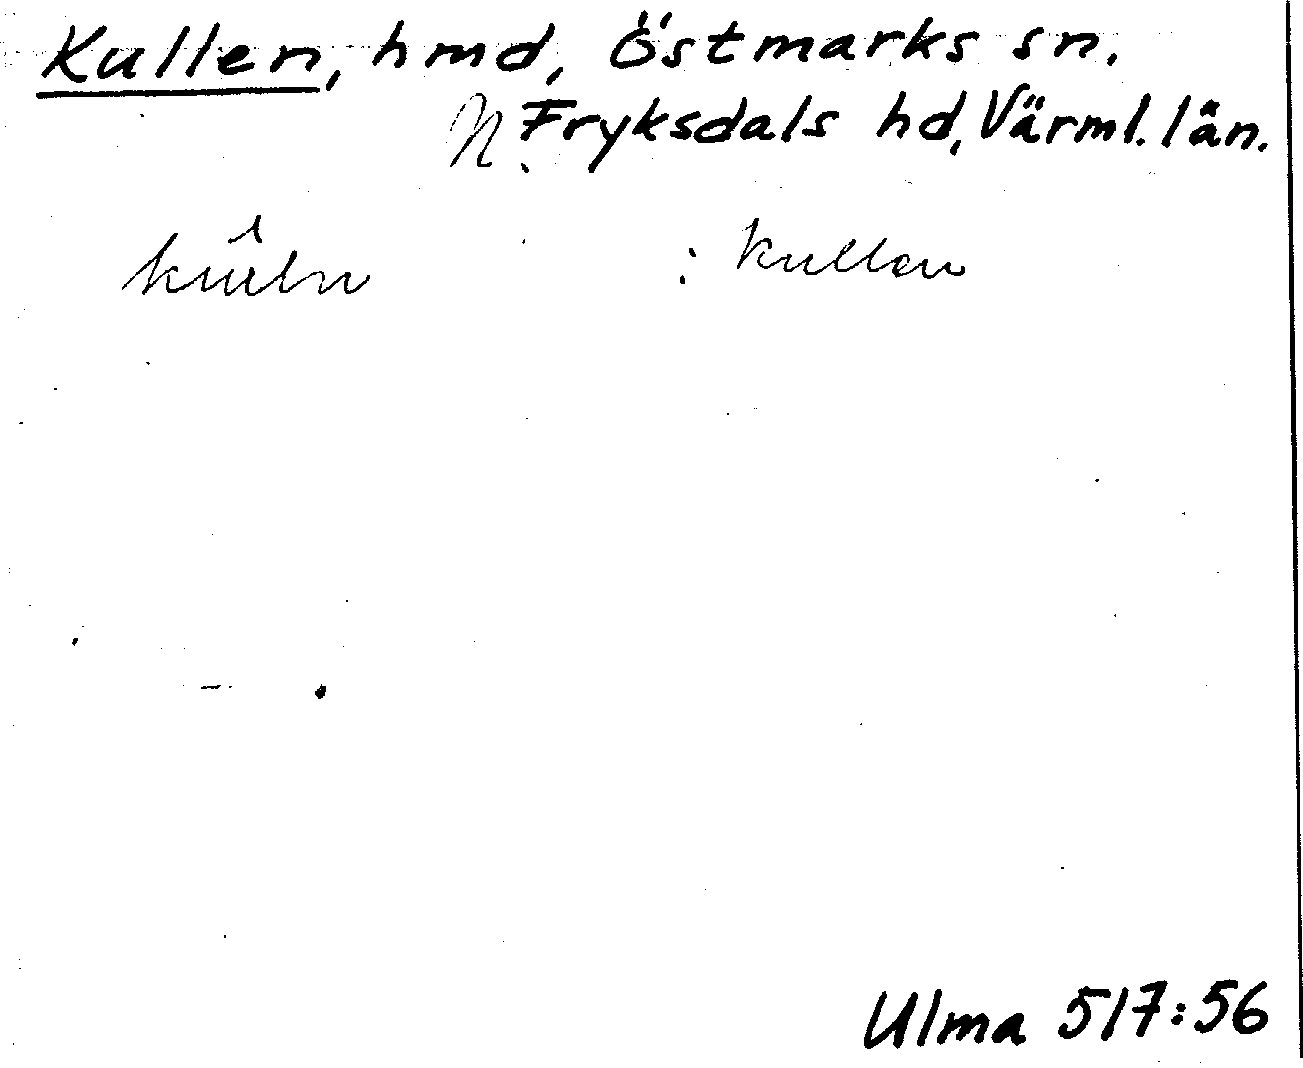 Kullen, hmd, Östmarks sn.
N. Fryksdals hd, Värml. län.
: kullen
Ulma 517:56